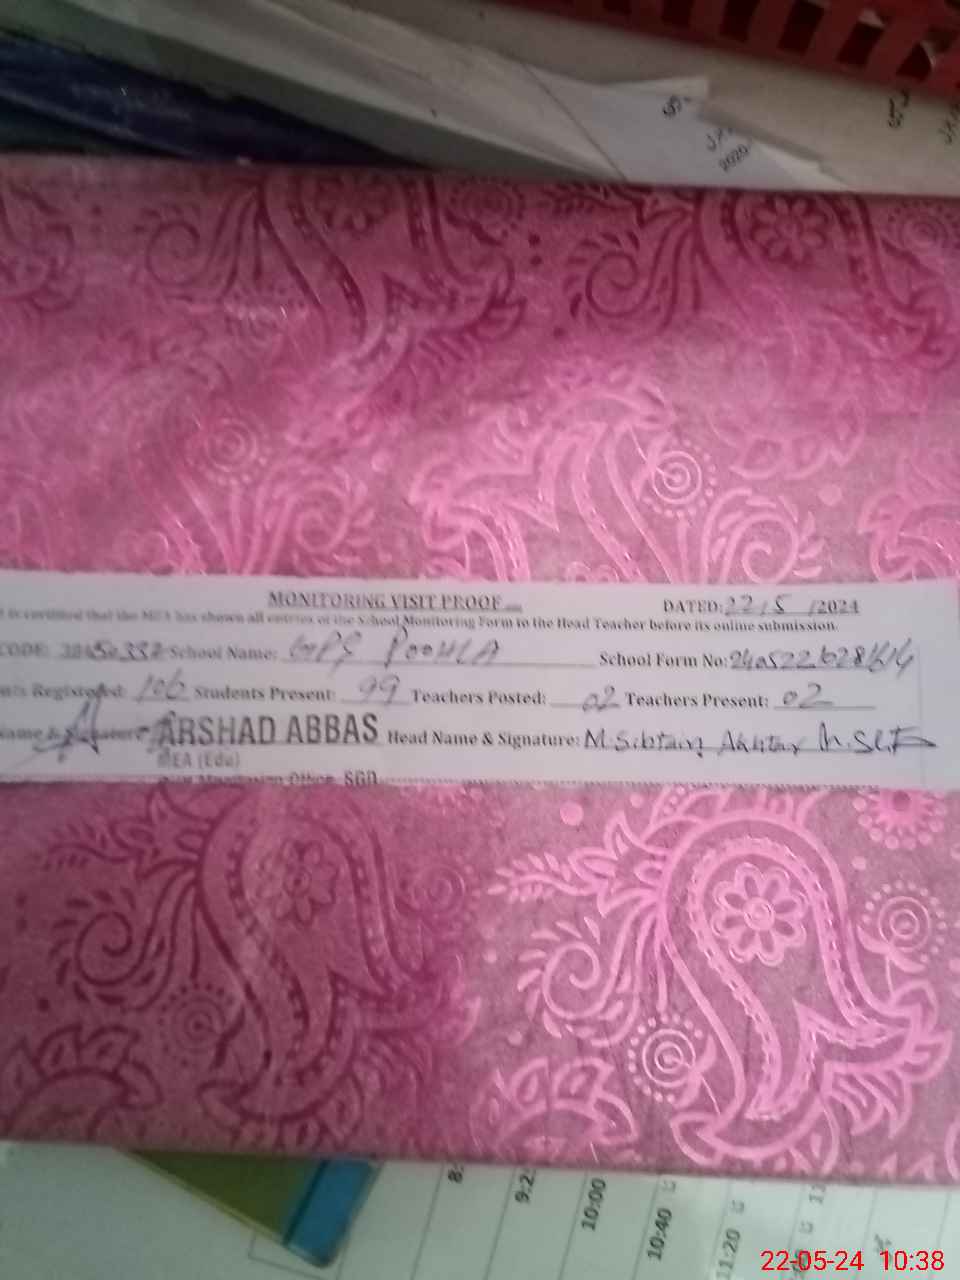 2020
MONITORING VISIT PROOF
DATED: 22/5/2024
is certified that the MEA has shown all entries of the School Monitoring Form to the Head Teacher before its online submission.
CODE: School Name: GPS POOHLA School Form No:
nts Registered: 106 Students Present: 99 Teachers Posted: 02 Teachers Present: 02
ame & Signature: ARSHAD ABBAS Head Name & Signature: M. Sibtain Akhtar
MEA (Edu)
Monitoring Office, SGD
8:
9:2
10:00
10:40
11:20
11
22-05-24 10:38